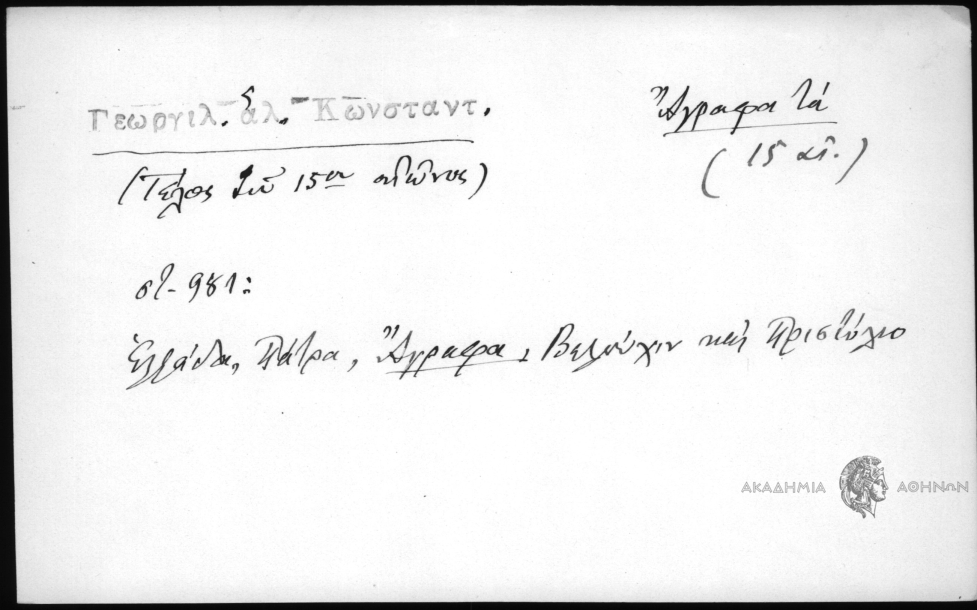 Γεωργιλ. ἅλ. Κωνσταντ.
Ἄγραφα τά
(15 αἰ.)
(Τέλος τοῦ 15ου αἰῶνος)
στ. 981:
Ἑλλάδα, Πάτρα, Ἄγραφα, Βελούχιν καὶ Πριστόλιο
ΑΚΑΔΗΜΙΑ ΑΘΗΝΩΝ